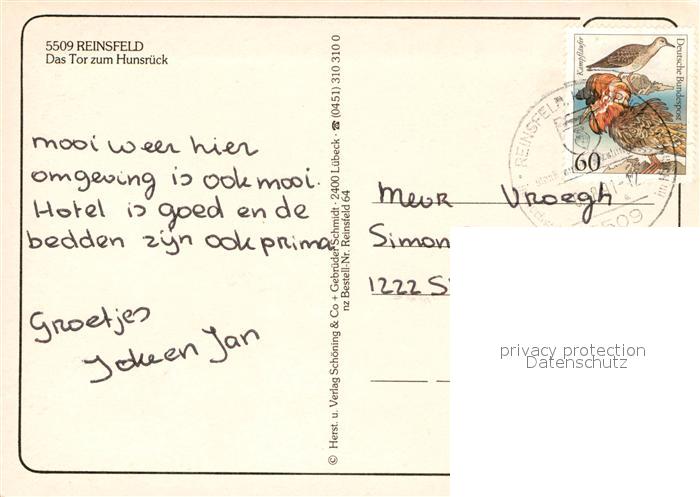 5509 REINSFELD
Das Tor zum Hunsrück
mooi weer hier
omgeving is ook mooi.
Hotel is goed en de
bedden zijn ook prima
Groetjes
Joke en Jan
© Herst. u. Verlag Schöning & Co + Gebrüder Schmidt · 2400 Lübeck · ☎ (0451) 310 310 0
nz Bestell-Nr. Reinsfeld 64
Kampfläufer
Deutsche Bundespost
60
REINSFELD
5509
Meur Vroegh
Simon
1222 S
privacy protection
Datenschutz